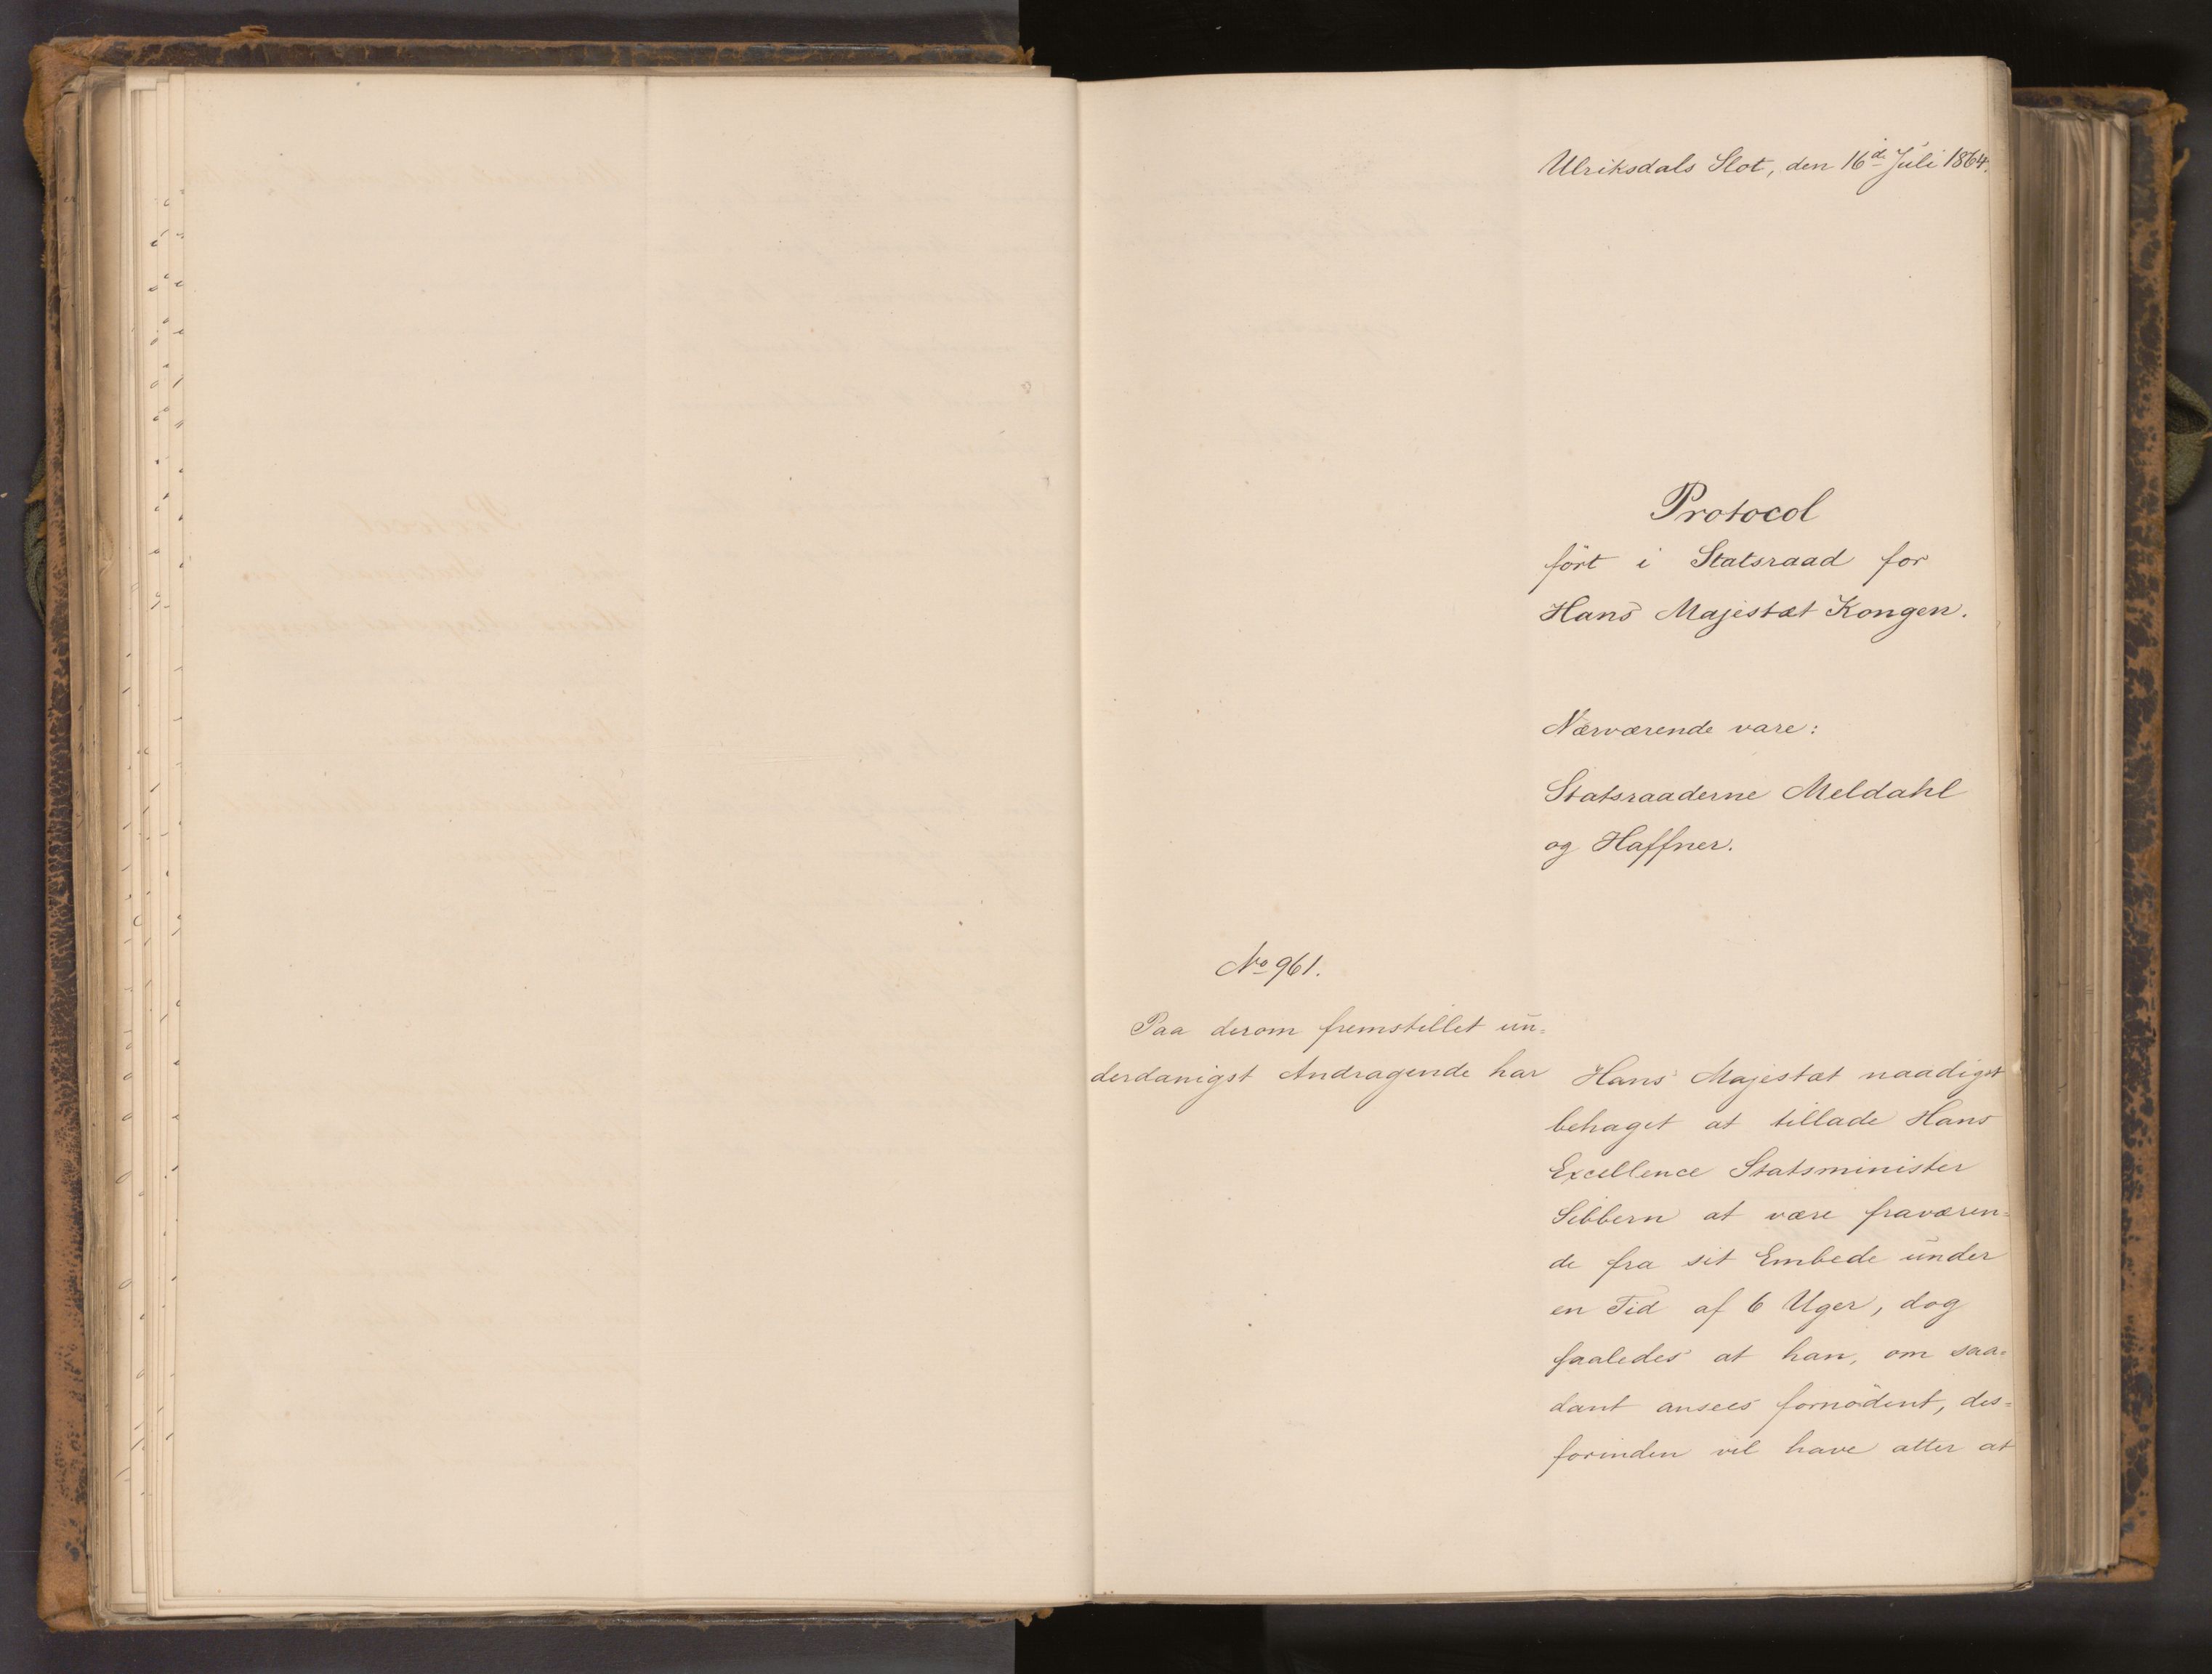 Ulriksdals Slot, den 16de Juli 1864.
Protocol
fört i Statsraad for
Hans Majestæt Kongen.
Nærværende vare:
Statsraaderne Meldahl
og Haffner.
No 961.
Paa derom fremstillet un=
derdanigst Andragende har
Hans Majestæt naadigst
behaget at tillade Hans
Excellence Statsminister
Sibbern at være fraværen=
de fra sit Embede under
en Tid af 6 Uger, dog
saaledes at han, om saa=
dant ansees fornödent, des=
forinden vil have atter at